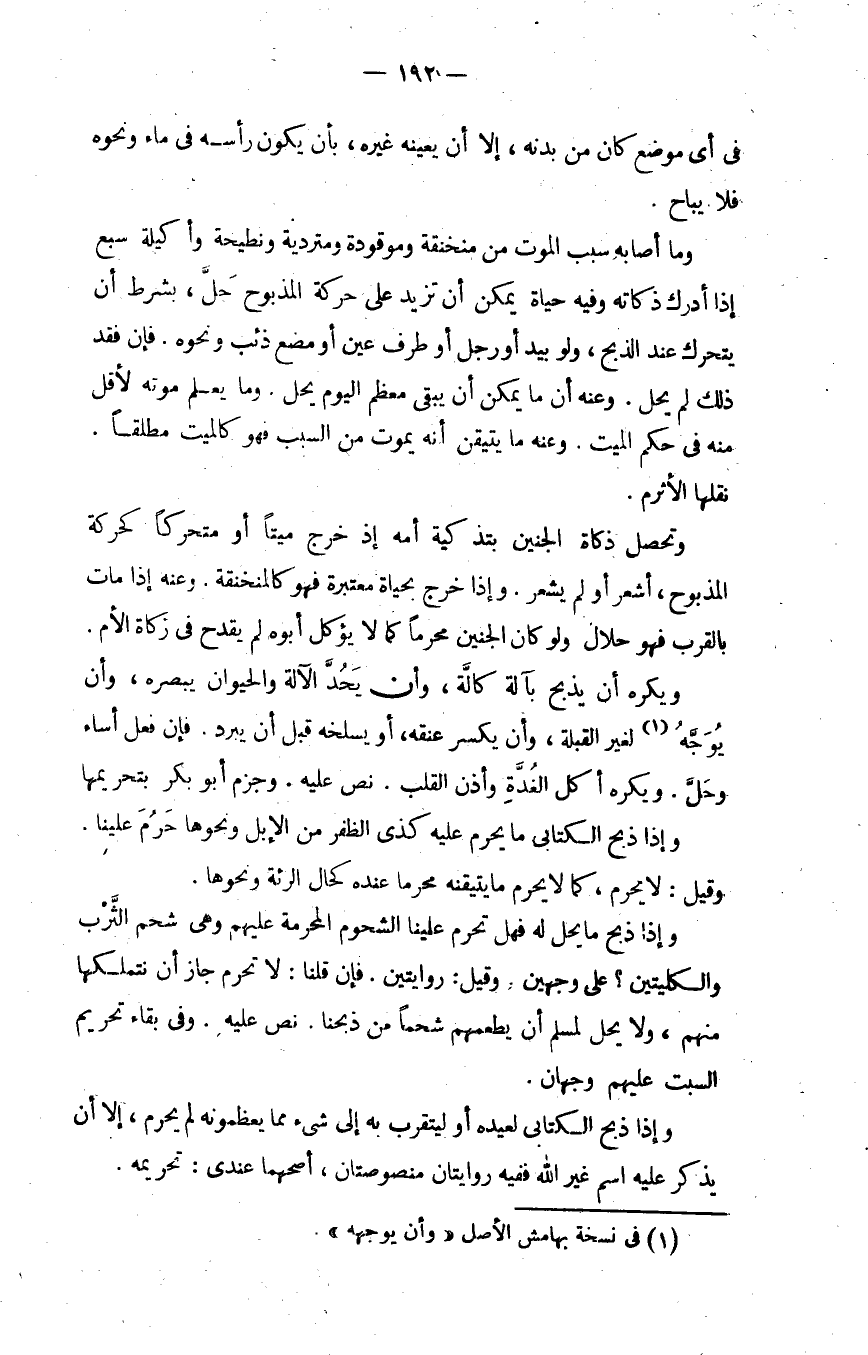 — ١٩٢ —
فى أى موضع كان من بدنه ، إلا أن يعينه غيره ، بأن يكون رأسه فى ماء ونحوه
فلا يباح .
وما أصابه سبب الموت من منخنقة وموقودة ومتردية ونطيحة وأكيلة سبع
إذا أدرك ذكاته وفيه حياة يمكن أن تزيد على حركة المذبوح حَلَّ ، بشرط أن
يتحرك عند الذبح ، ولو بيد أو رجل أو طرف عين أو مضع ذئب ونحوه . فإن فقد
ذلك لم يحل . وعنه أن ما يمكن أن يبقى معظم اليوم يحل . وما يعلم موته لأقل
منه فى حكم الميت . وعنه ما يتيقن أنه يموت من السبب فهو كالميت مطلقاً .
نقلها الأثرم .
وتحصل ذكاة الجنين بتذكية أمه إذ خرج ميتاً أو متحركاً كحركة
المذبوح ، أشعر أو لم يشعر . وإذا خرج بحياة معتبرة فهو كالمنخنقة . وعنه إذا مات
بالقرب فهو حلال ولو كان الجنين محرماً كما لا يؤكل أبوه لم يقدح فى زكاة الأم .
ويكره أن يذبح بآلة كالَّة ، وأن يَحُدَّ الآلة والحيوان يبصره ، وأن
يُوَجَّهُ (١) لغير القبلة ، وأن يكسر عنقه، أو يسلخه قبل أن يبرد . فإن فعل أساء
وحَلَّ . ويكره أكل الغُدَّةِ وأذن القلب . نص عليه . وجزم أبو بكر بتحريمها
وإذا ذبح الكتابى ما يحرم عليه كذى الظفر من الإبل ونحوها حَرُمَ علينا .
وقيل : لا يحرم ، كما لا يحرم ما يتيقنه محرما عنده كحال الرئة ونحوها .
وإذا ذبح مايحل له فهل تحرم علينا الشحوم المحرمة عليهم وهى شحم الثَّرْب
والكليتين ؟ على وجهين . وقيل: روايتين . فإن قلنا : لا تحرم جاز أن نتملكها
منهم ، ولا يحل لمسلم أن يطعمهم شحماً من ذبحنا . نص عليه . وفى بقاء تحريم
السبت عليهم وجهان .
وإذا ذبح الكتابى لعيده أو ليتقرب به إلى شىء مما يعظمونه لم يحرم ، إلا أن
يذكر عليه اسم غير الله ففيه روايتان منصوصتان ، أصحهما عندى : تحريمه .
(١) فى نسخة بهامش الأصل « وأن يوجهه » .